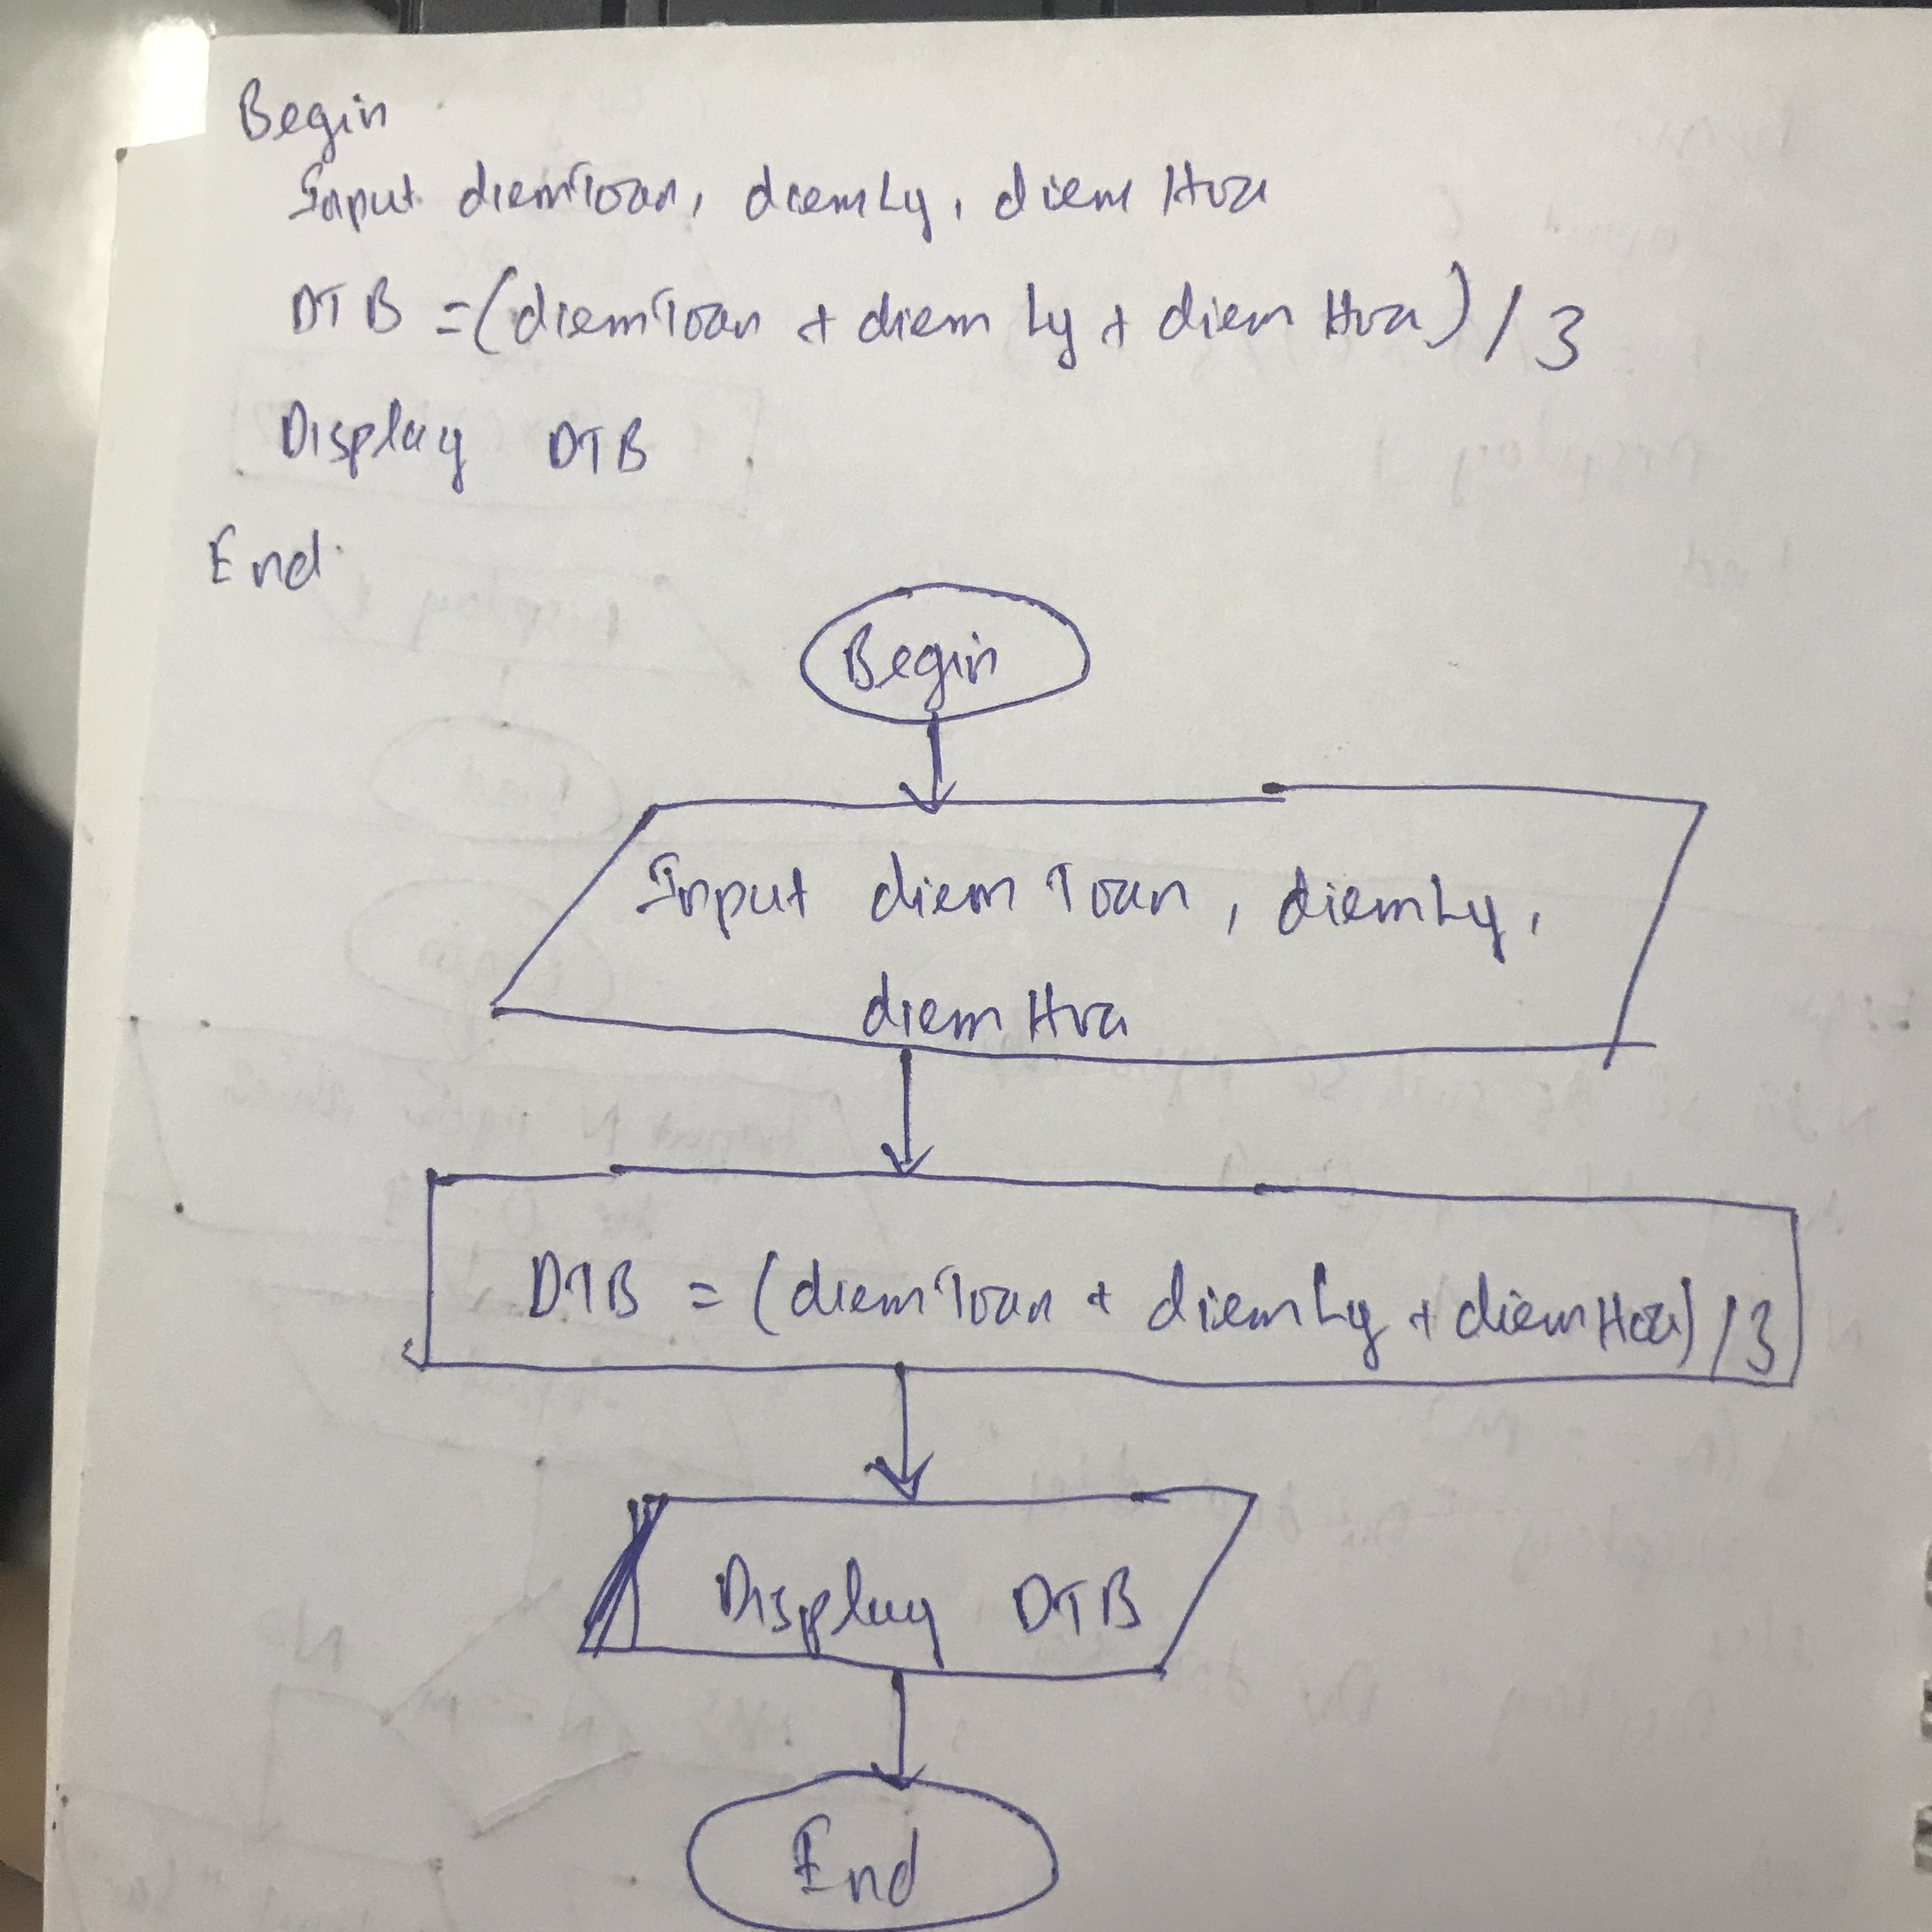 Begin
Input diemToan, diemLy, diemHoa
DTB = (diemToan + diemLy + diemHoa) / 3
Display DTB
End
Begin
Input diemToan, diemLy,
diemHoa
DTB = (diemToan + diemLy + diemHoa) / 3
Display DTB
End